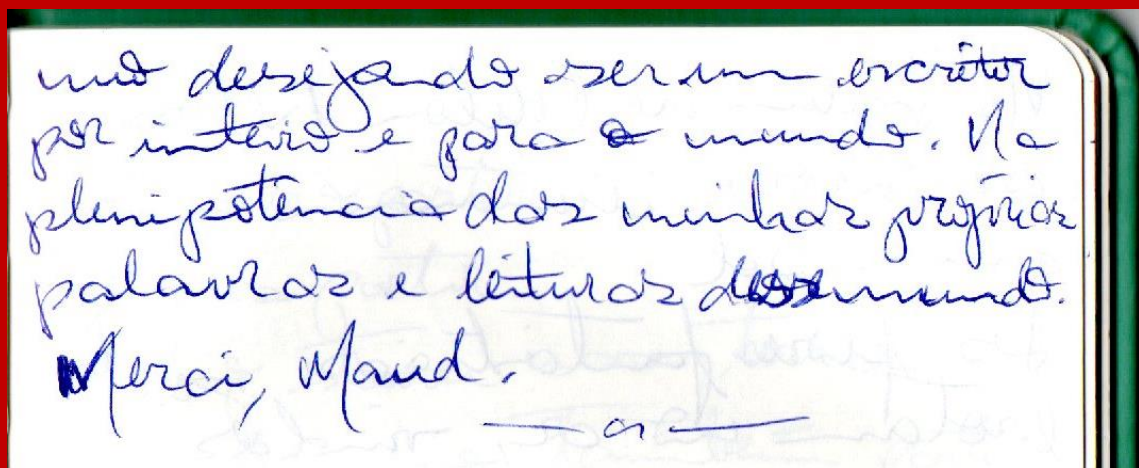 mo desejando ser um escritor
por inteiro e para o mundo. Na
plenipotência das minhas próprias
palavras e leituras desse mundo.
Merci, Maud.